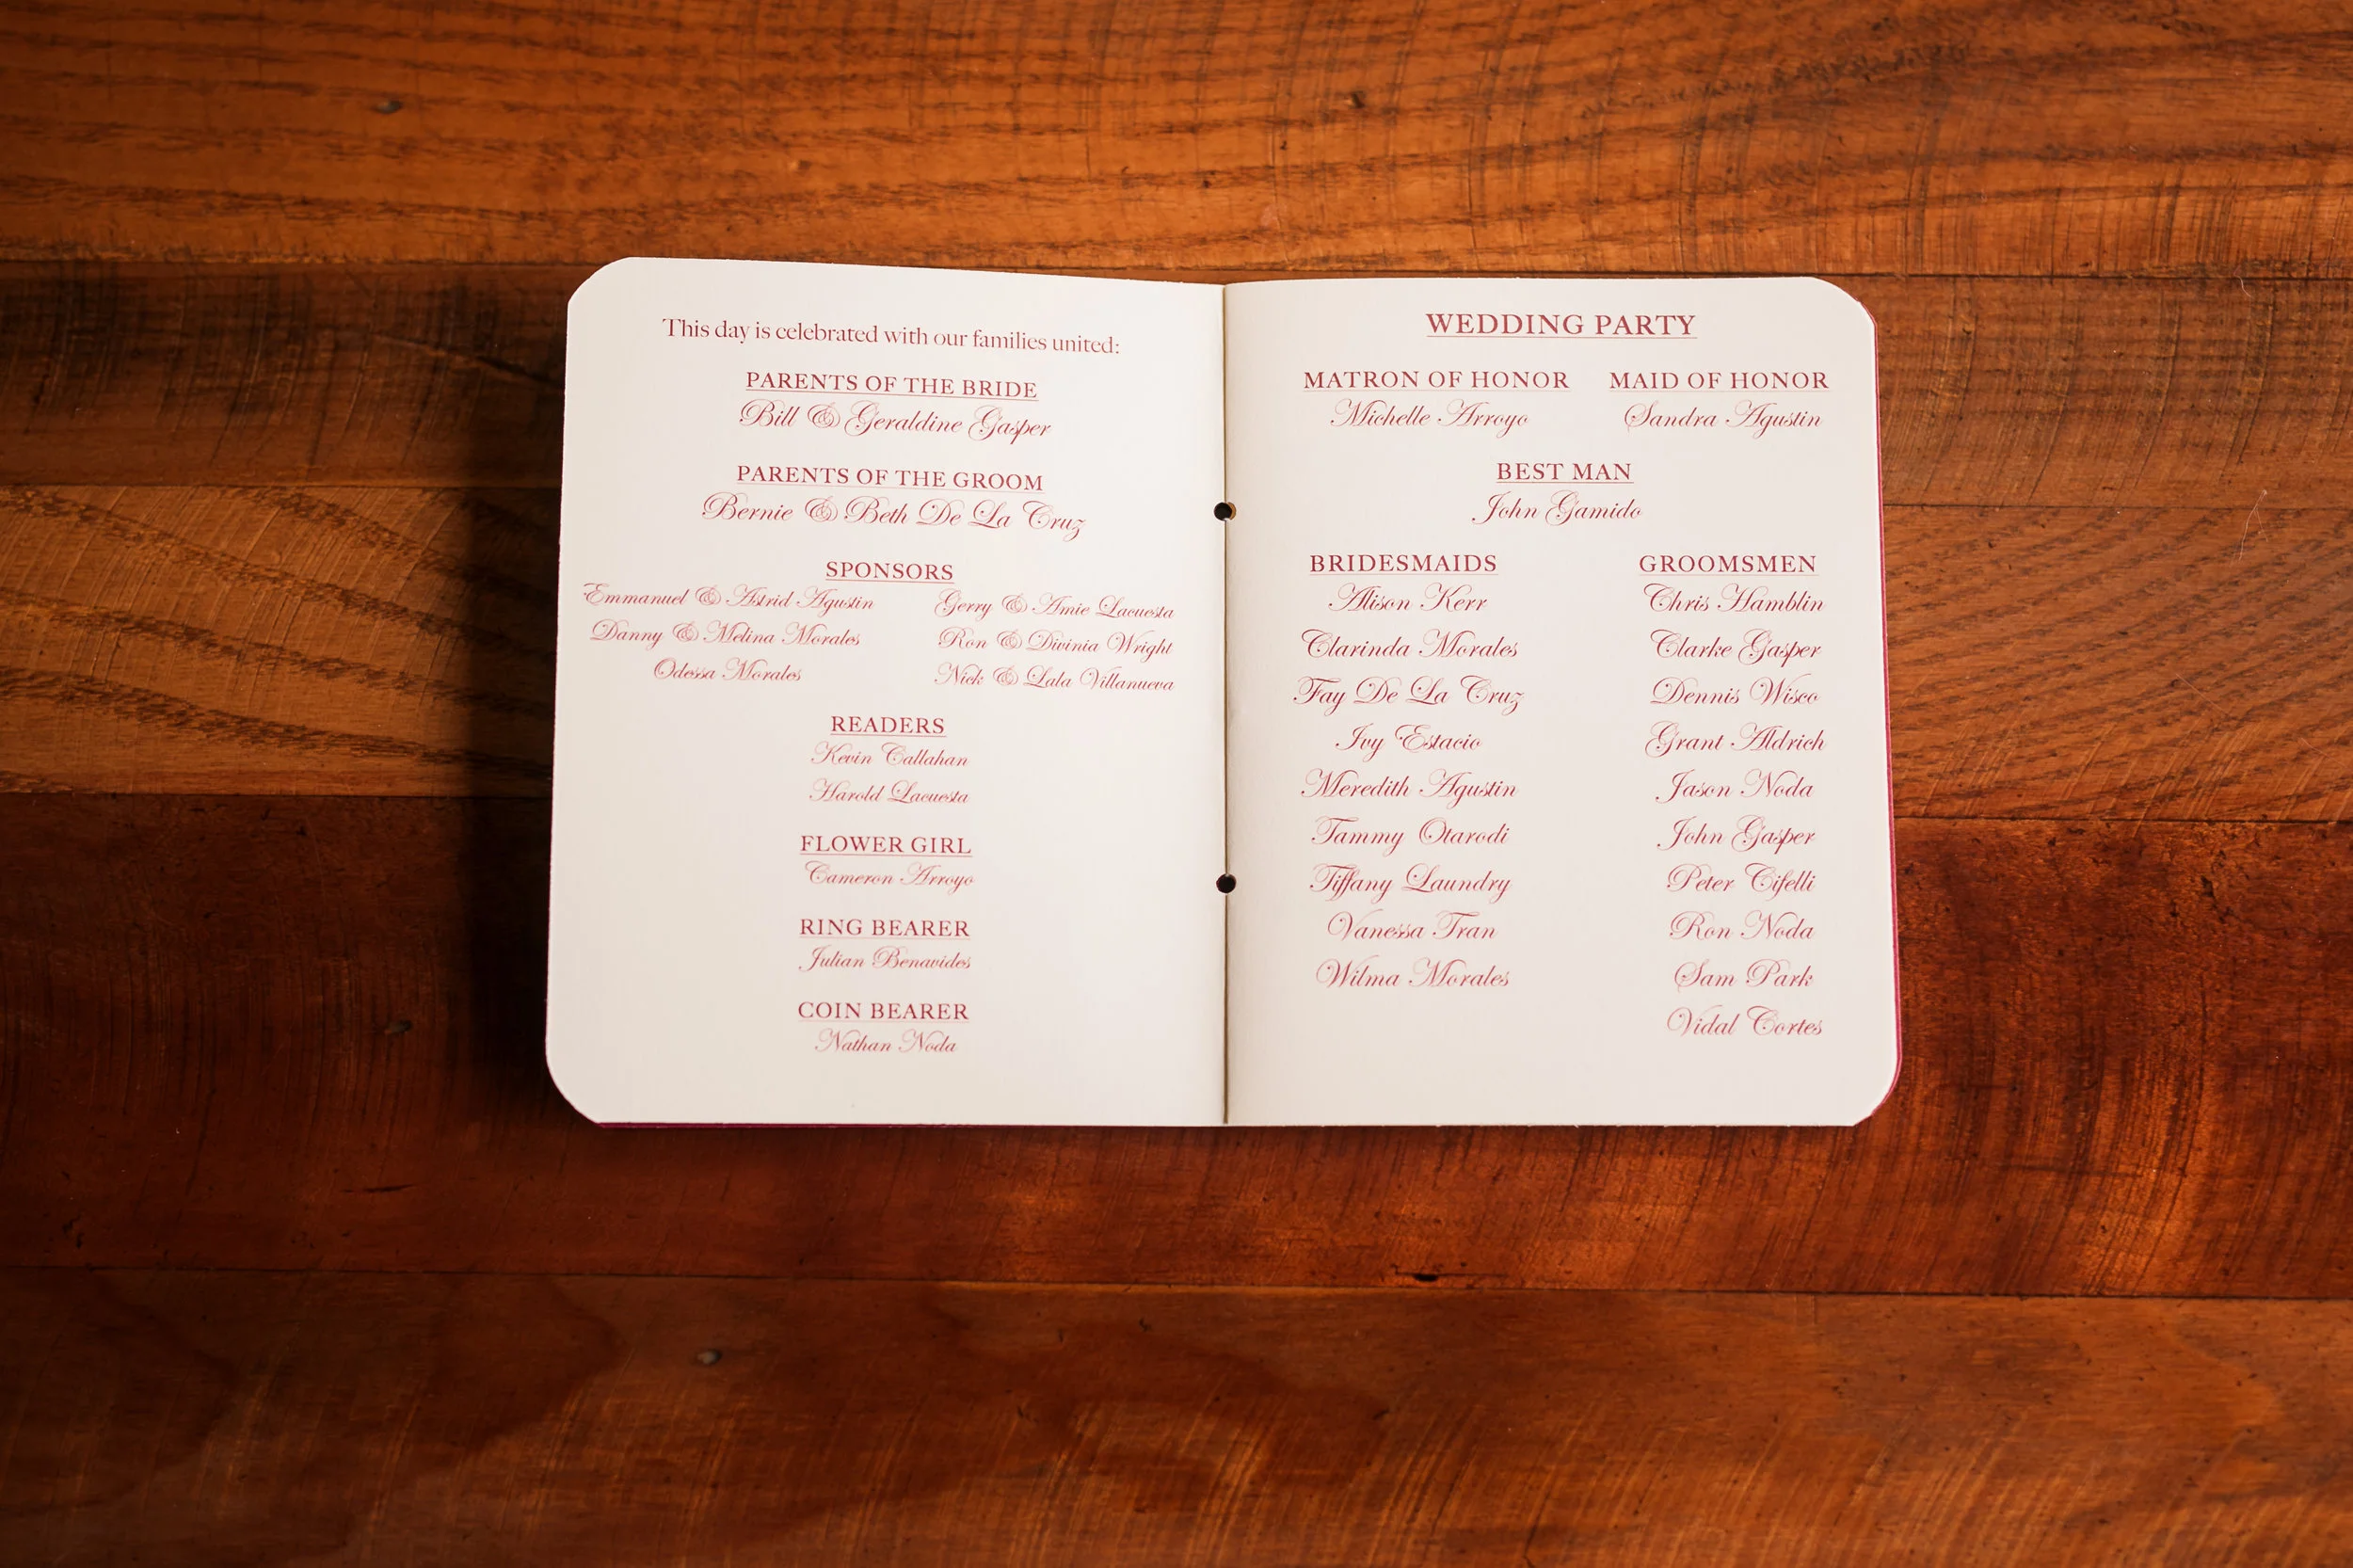 This day is celebrated with our families united:
PARENTS OF THE BRIDE
Bill & Geraldine Gasper
PARENTS OF THE GROOM
Bernie & Beth De La Cruz
SPONSORS
Emmanuel & Astrid Agustin Gerry & Amie Lacuesta
Danny & Melina Morales Ron & Divinia Wright
Odessa Morales Nick & Lala Villanueva
READERS
Kevin Callahan
Harold Lacuesta
FLOWER GIRL
Cameron Arroyo
RING BEARER
Julian Benavides
COIN BEARER
Nathan Noda
WEDDING PARTY
MATRON OF HONOR MAID OF HONOR
Michelle Arroyo Sandra Agustin
BEST MAN
John Gamido
BRIDESMAIDS GROOMSMEN
Alison Kerr Chris Hamblin
Clarinda Morales Clarke Gasper
Fay De La Cruz Dennis Wisco
Ivy Estacio Grant Aldrich
Meredith Agustin Jason Noda
Tammy Otarodi John Gasper
Tiffany Laundry Peter Cifelli
Vanessa Tran Ron Noda
Wilma Morales Sam Park
Vidal Cortes